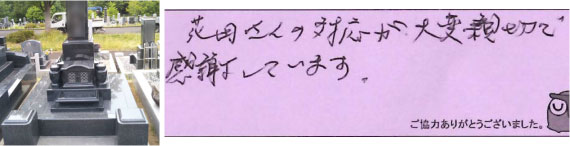 花田さんの対応が大変親切で
感謝しています。
ご協力ありがとうございました。